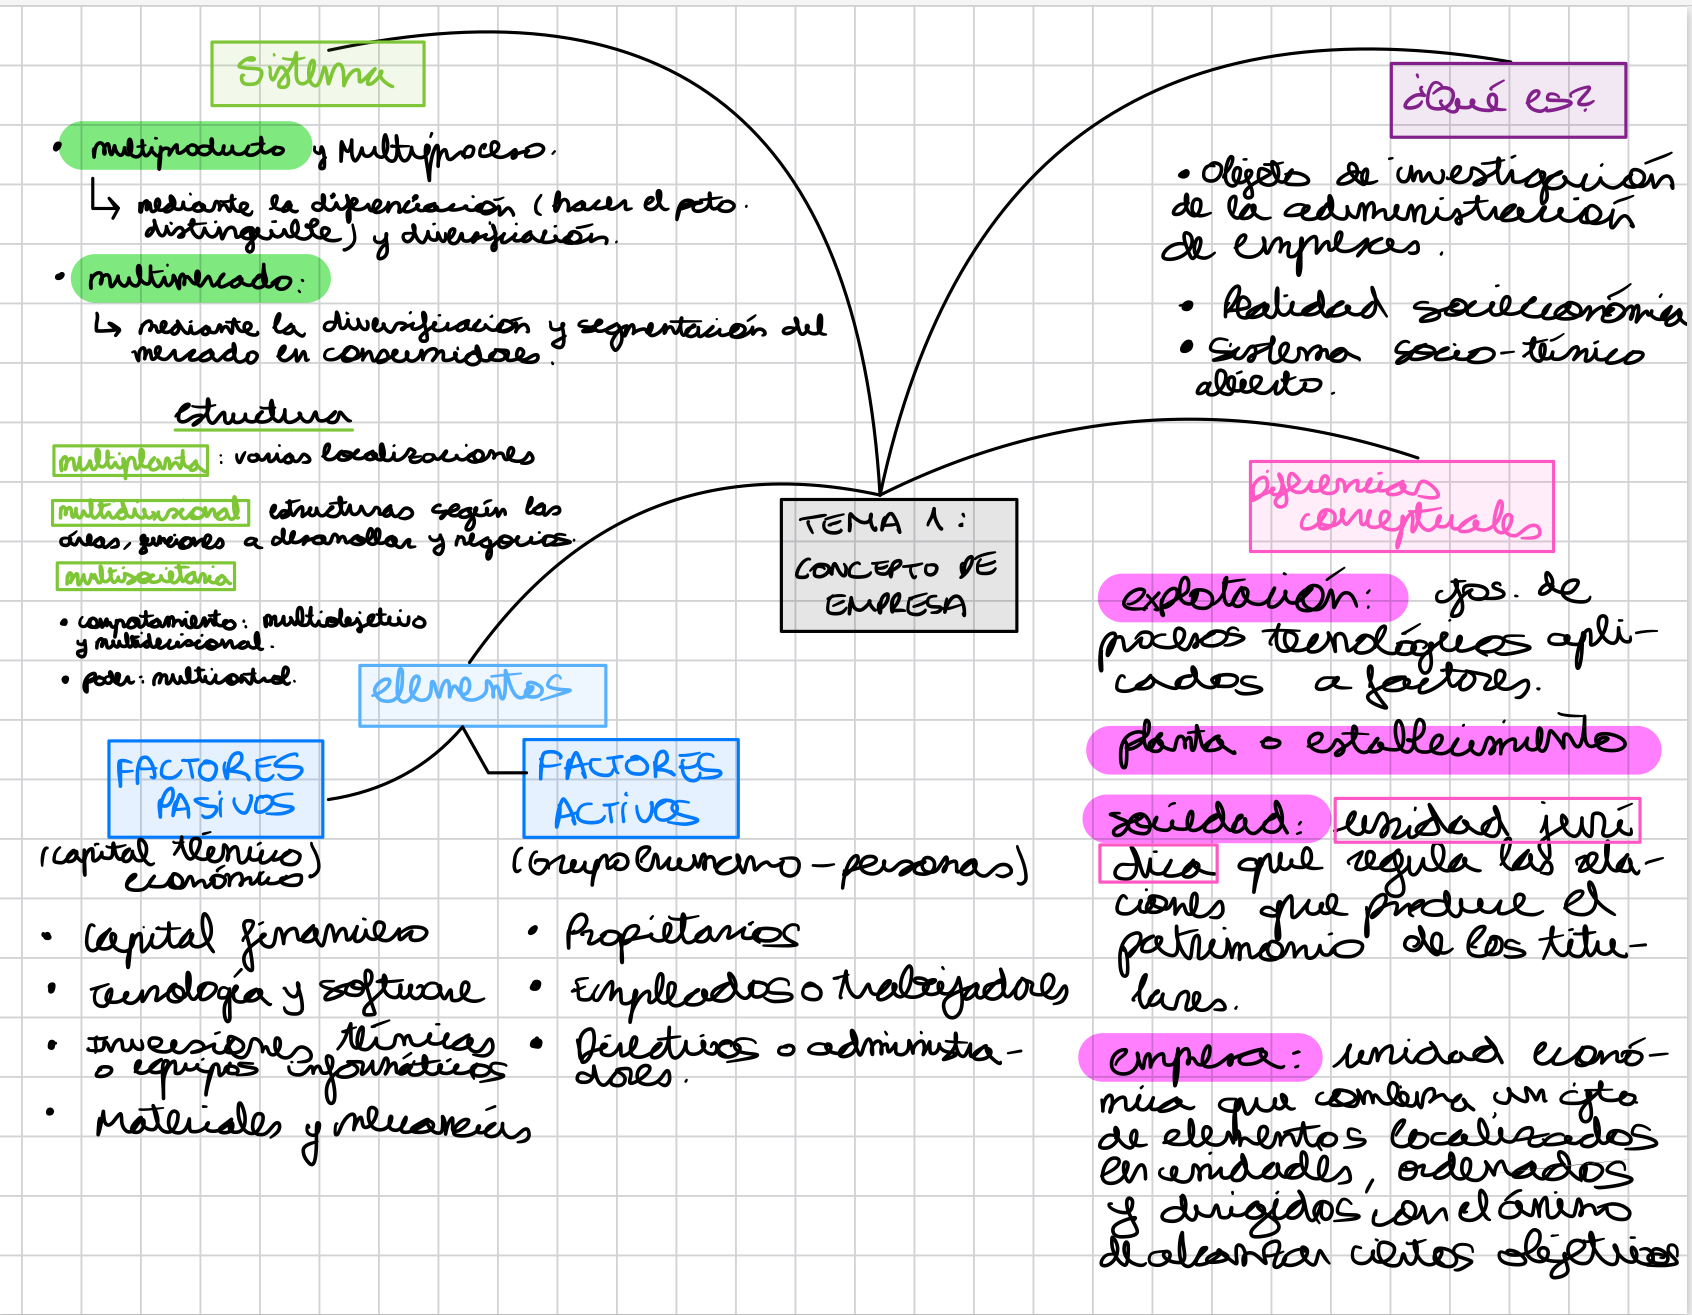 Sistema
• multiproducto y Multiproceso.
↳ mediante la diferenciación (hacer el pcto.
distinguible) y diversificación.
• multimercado:
↳ mediante la diversificación y segmentación del
mercado en consumidores.
estructura
multiplanta : varias localizaciones
multidivisional estructuras según las
áreas, funciones a desarrollar y negocios.
multisocietaria
• comportamiento: multiobjetivo
y multidecisional.
• poder: multicontrol.
TEMA 1:
CONCEPTO DE
EMPRESA
elementos
FACTORES
PASIVOS
(capital técnico
económico)
• Capital financiero
• Tecnología y software
• Inversiones técnicas
o equipos informáticos
• Materiales y mercancías
FACTORES
ACTIVOS
(Grupo humano - personas)
• Propietarios
• Empleados o trabajadores
• Directivos o administra-
dores.
¿Qué es?
• Objeto de investigación
de la administración
de empresas.
• Realidad socieconómica
• Sistema socio-técnico
abierto.
Diferencias
conceptuales
explotación: cjos. de
procesos tecnológicos apli-
cados a factores.
planta o establecimiento
sociedad: unidad jurí
dica que regula las rela-
ciones que produce el
patrimonio de los titu-
lares.
empresa: unidad econó-
mica que combina un cjto
de elementos localizados
en unidades, ordenados
y dirigidos con el ánimo
de alcanzar ciertos objetivos